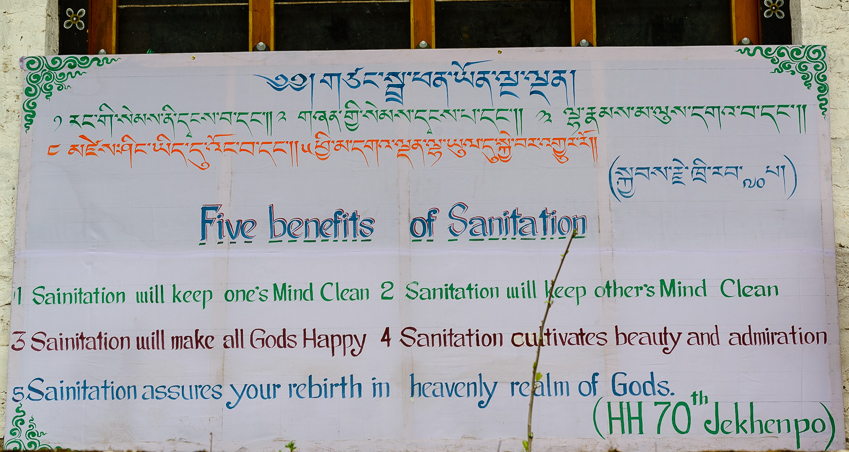 ༄༅། གཙང་སྦྲ་ཕན་ཡོན་ལྔ་ལྡན།
༡ རང་གི་སེམས་ནི་དྭངས་བ་དང༌།། ༢ གཞན་གྱི་སེམས་དྭངས་པ་དང༌།། ༣ ལྷ་རྣམས་མ་ལུས་དགའ་བ་དང་།།
༤ མཛེས་ཤིང་ཡིད་དུ་འོང་བ་དང་།།༥ ཕྱི་མ་དགའ་ལྡན་ལྷ་ཡུལ་དུ་སྐྱེ་བར་འགྱུར་རོ།།
(སྐྱབས་རྗེ་ཁྲི་རབ་༧༠པ།)
Five benefits of Sanitation
1 Sainitation will keep one's Mind Clean 2 Sanitation will keep other's Mind Clean
3 Sainitation will make all Gods Happy 4 Sanitation cultivates beauty and admiration
5.Sainitation assures your rebirth in heavenly realm of Gods.
(HH 70th Jekhenpo)